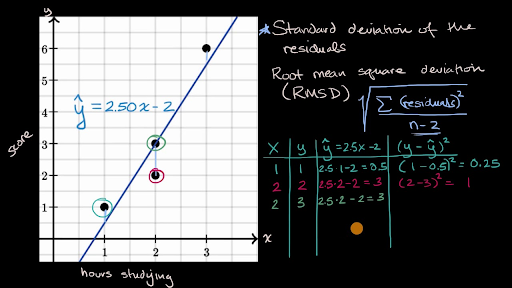 y
6
5
4
3
2
1
1 2 3
x
score
hours studying
ŷ = 2.50x - 2
★ Standard deviation of the
residuals
Root mean square deviation
(RMSD) √
Σ (residuals)²
n - 2
x y ŷ = 2.5x - 2 (y - ŷ)²
1 1 2.5·1 - 2 = 0.5 (1 - 0.5)² = 0.25
2 2 2.5·2 - 2 = 3 (2 - 3)² = 1
2 3 2.5·2 - 2 = 3